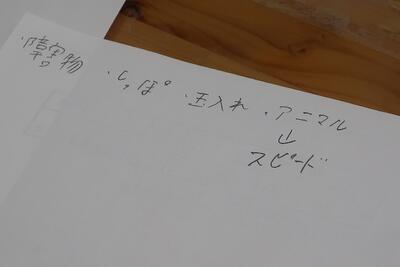 ・障害物 ・しっぽ ・玉入れ ・アニマル
↓
スピード